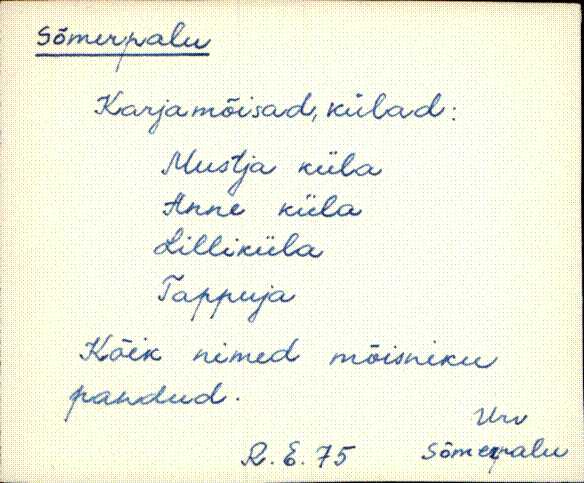 Sõmerpalu
Karjamõisad, külad:
Mustja küla
Anne küla
Lilliküla
Tappuja
Kõik nimed mõisniku
pandud.
Urv
R. E. 75 Sõmerpalu